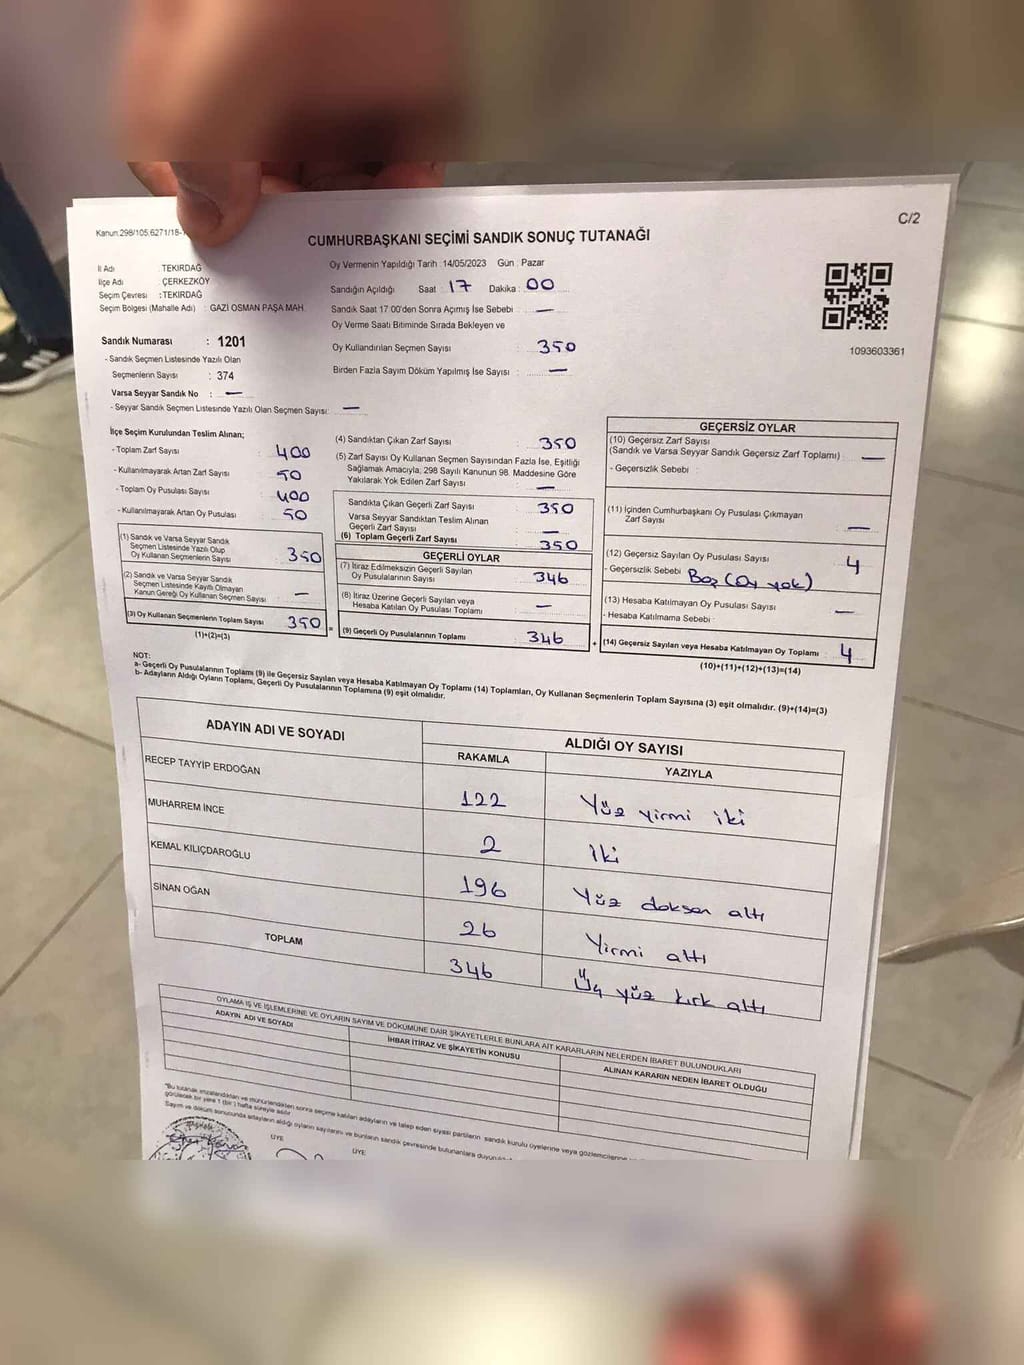 C/2
Kanun.298/105.6271/18-
CUMHURBAŞKANI SEÇİMİ SANDIK SONUÇ TUTANAĞI
İl Adı : TEKİRDAĞ
İlçe Adı : ÇERKEZKÖY
Seçim Çevresi : TEKİRDAĞ
Seçim Bölgesi (Mahalle Adı) : GAZİ OSMAN PAŞA MAH.
Sandık Numarası : 1201
- Sandık Seçmen Listesinde Yazılı Olan
Seçmenlerin Sayısı : 374
Varsa Seyyar Sandık No : —
- Seyyar Sandık Seçmen Listesinde Yazılı Olan Seçmen Sayısı: —
Oy Vermenin Yapıldığı Tarih : 14/05/2023 Gün : Pazar
Sandığın Açıldığı Saat : 17 Dakika : 00
Sandık Saat 17:00'den Sonra Açımış İse Sebebi : —
Oy Verme Saati Bitiminde Sırada Bekleyen ve
Oy Kullandırılan Seçmen Sayısı : 350
Birden Fazla Sayım Döküm Yapılmış İse Sayısı : —
1093603361
İlçe Seçim Kurulundan Teslim Alınan;
- Toplam Zarf Sayısı : 400
- Kullanılmayarak Artan Zarf Sayısı : 50
- Toplam Oy Pusulası Sayısı : 400
- Kullanılmayarak Artan Oy Pusulası : 50
(1) Sandık ve Varsa Seyyar Sandık
Seçmen Listesinde Yazılı Olup
Oy Kullanan Seçmenlerin Sayısı : 350
(2) Sandık ve Varsa Seyyar Sandık
Seçmen Listesinde Kayıtlı Olmayan
Kanun Gereği Oy Kullanan Seçmen Sayısı : —
(3) Oy Kullanan Seçmenlerin Toplam Sayısı : 350
(1)+(2)=(3)
(4) Sandıktan Çıkan Zarf Sayısı : 350
(5) Zarf Sayısı Oy Kullanan Seçmen Sayısından Fazla İse, Eşitliği
Sağlamak Amacıyla, 298 Sayılı Kanunun 98. Maddesine Göre
Yakılarak Yok Edilen Zarf Sayısı : —
Sandıkta Çıkan Geçerli Zarf Sayısı : 350
Varsa Seyyar Sandıktan Teslim Alınan
Geçerli Zarf Sayısı : —
(6) Toplam Geçerli Zarf Sayısı : 350
GEÇERLİ OYLAR
(7) İtiraz Edilmeksizin Geçerli Sayılan
Oy Pusulalarının Sayısı : 346
(8) İtiraz Üzerine Geçerli Sayılan veya
Hesaba Katılan Oy Pusulası Toplamı : —
= (9) Geçerli Oy Pusulalarının Toplamı : 346 +
GEÇERSİZ OYLAR
(10) Geçersiz Zarf Sayısı
(Sandık ve Varsa Seyyar Sandık Geçersiz Zarf Toplamı) : —
- Geçersizlik Sebebi :
(11) İçinden Cumhurbaşkanı Oy Pusulası Çıkmayan
Zarf Sayısı : —
(12) Geçersiz Sayılan Oy Pusulası Sayısı : 4
- Geçersizlik Sebebi : Boş (Oy yok)
(13) Hesaba Katılmayan Oy Pusulası Sayısı : —
- Hesaba Katılmama Sebebi :
(14) Geçersiz Sayılan veya Hesaba Katılmayan Oy Toplamı : 4
(10)+(11)+(12)+(13)=(14)
NOT:
a- Geçerli Oy Pusulalarının Toplamı (9) ile Geçersiz Sayılan veya Hesaba Katılmayan Oy Toplamı (14) Toplamları, Oy Kullanan Seçmenlerin Toplam Sayısına (3) eşit olmalıdır. (9)+(14)=(3)
b- Adayların Aldığı Oyların Toplamı, Geçerli Oy Pusulalarının Toplamına (9) eşit olmalıdır.
ADAYIN ADI VE SOYADI
ALDIĞI OY SAYISI
RAKAMLA YAZIYLA
RECEP TAYYİP ERDOĞAN 122 Yüz yirmi iki
MUHARREM İNCE 2 İki
KEMAL KILIÇDAROĞLU 196 Yüz doksan altı
SİNAN OĞAN 26 Yirmi altı
TOPLAM 346 Üç yüz kırk altı
OYLAMA İŞ VE İŞLEMLERİNE VE OYLARIN SAYIM VE DÖKÜMÜNE DAİR ŞİKAYETLERLE BUNLARA AİT KARARLARIN NELERDEN İBARET BULUNDUKLARI
ADAYIN ADI VE SOYADI İHBAR İTİRAZ VE ŞİKAYETİN KONUSU ALINAN KARARIN NEDEN İBARET OLDUĞU
"Bu tutanak imzalandıktan ve mühürlendikten sonra seçime katılan adayların ve talep eden siyasi partilerin sandık kurulu üyelerine veya gözlemcilerine
görülecek bir yere 1 (bir) hafta süreyle asılır.
Sayım ve döküm sonucunda adayların aldığı oyların sayılarını ve bunların sandık çevresinde bulunanlara
ÜYE
ÜYE